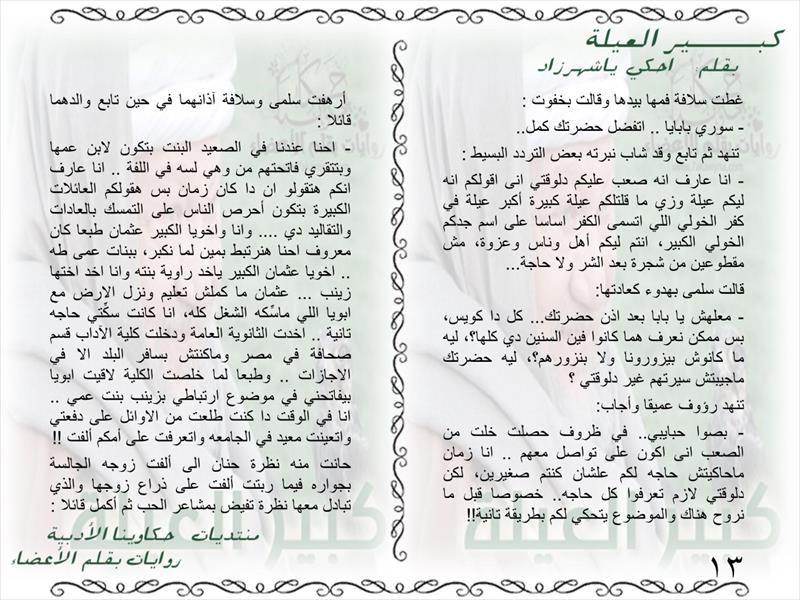 كبـــــــير العيلة
بقلم احكي ياشهرزاد
غطت سلافة فمها بيدها وقالت بخفوت :
- سوري بابايا .. اتفضل حضرتك كمل..
تنهد ثم تابع وقد شاب نبرته بعض التردد البسيط :
- انا عارف انه صعب عليكم دلوقتي انى اقولكم انه
ليكم عيلة وزي ما قلتلكم عيلة كبيرة أكبر عيلة في
كفر الخولي اللي اتسمى الكفر اساسا على اسم جدكم
الخولي الكبير، انتم ليكم أهل وناس وعزوة، مش
مقطوعين من شجرة بعد الشر ولا حاجة...
قالت سلمى بهدوء كعادتها:
- معلهش يا بابا بعد اذن حضرتك... كل دا كويس،
بس ممكن نعرف هما كانوا فين السنين دي كلها؟، ليه
ما كانوش بيزورونا ولا بنزورهم؟، ليه حضرتك
ماجيبتش سيرتهم غير دلوقتي ؟
تنهد رؤوف عميقا وأجاب:
- بصوا حبايبي.. في ظروف حصلت خلت من
الصعب انى اكون على تواصل معهم .. انا زمان
ماحاكيتش حاجه لكم علشان كنتم صغيرين، لكن
دلوقتي لازم تعرفوا كل حاجه.. خصوصا قبل ما
نروح هناك والموضوع يتحكي لكم بطريقة تانية!!
١٣
أرهفت سلمى وسلافة آذانهما في حين تابع والدهما
قائلا :
- احنا عندنا في الصعيد البنت بتكون لابن عمها
وبتتقري فاتحتهم من وهي لسه في اللفة .. انا عارف
انكم هتقولو ان دا كان زمان بس هقولكم العائلات
الكبيرة بتكون أحرص الناس على التمسك بالعادات
والتقاليد دي .... وانا واخويا الكبير عثمان طبعا كان
معروف احنا هنرتبط بمين لما نكبر، ببنات عمى طه
.. اخويا عثمان الكبير ياخد راوية بنته وانا اخد اختها
زينب ... عثمان ما كملش تعليم ونزل الارض مع
ابويا اللي ماسّكه الشغل كله، انا كانت سكّتي حاجه
تانية .. اخدت الثانوية العامة ودخلت كلية الآداب قسم
صحافة في مصر وماكنتش بسافر البلد الا في
الاجازات .. وطبعا لما خلصت الكلية لاقيت ابويا
بيفاتحني في موضوع ارتباطي بزينب بنت عمي ..
انا في الوقت دا كنت طلعت من الاوائل على دفعتي
واتعينت معيد في الجامعه واتعرفت على أمكم ألفت !!
حانت منه نظرة حنان الى ألفت زوجه الجالسة
بجواره فيما ربتت ألفت على ذراع زوجها والذي
تبادل معها نظرة تفيض بمشاعر الحب ثم أكمل قائلا :
منتديات حكاوينا الأدبية
روايات بقلم الأعضاء
كبير العيلة
كبير العيلة